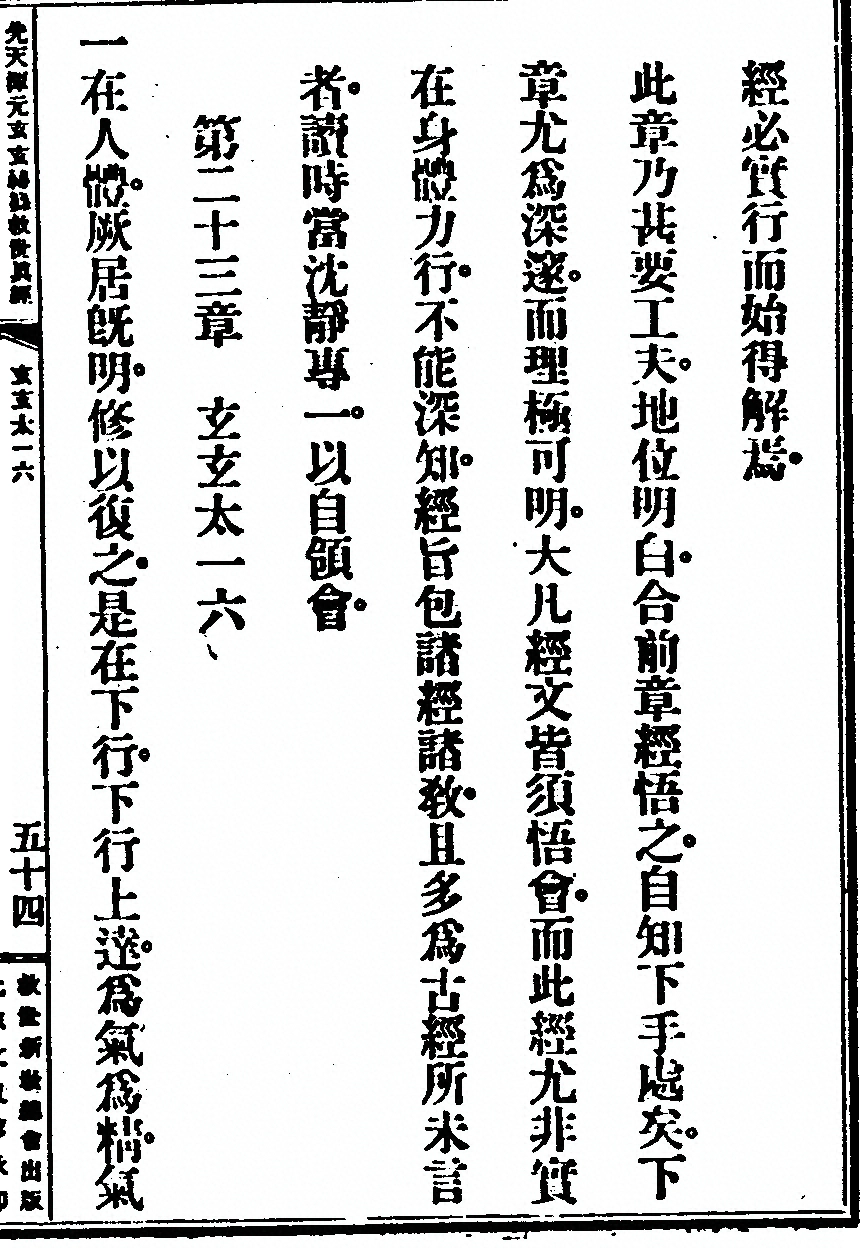 經必實行而始得解焉。
此章乃甚要工夫。地位明白。合前章經悟之。自知下手處矣。下
章尤爲深邃。而理極可明。大凡經文皆須悟會。而此經尤非實
在身體力行。不能深知。經旨包諸經諸敎。且多爲古經所未言
者。讀時當沈靜專一。以自領會。
第二十三章　玄玄太一六
一在人體。厥居旣明。修以復之。是在下行。下行上達。爲氣爲精。氣
先天
元玄玄
救世眞經
玄玄太一六
五十四
救世新敎總會出版